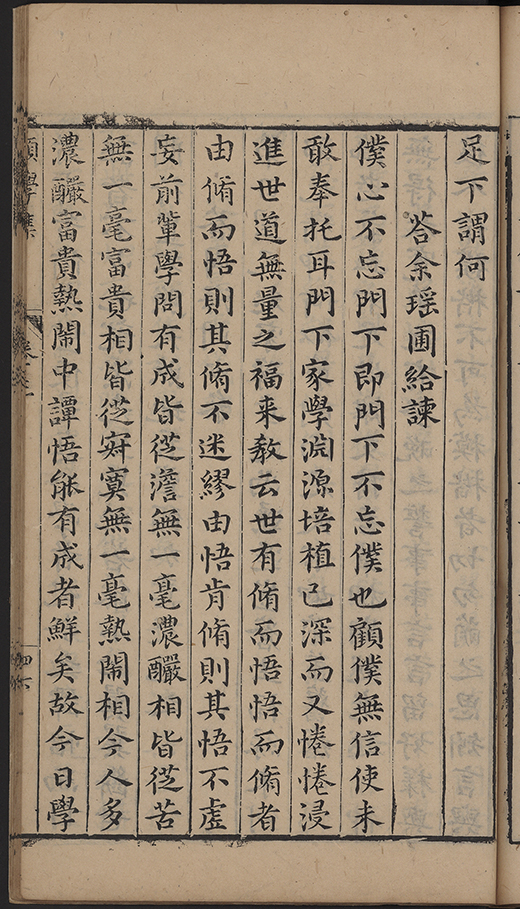 足下謂何
荅余瑶圃給諫
僕心不忘門下即門下不忘僕也顧僕無信使未
敢奉托耳門下家學淵源培植已深而又惓惓浸
進世道無量之福来敎云世有脩而悟悟而脩者
由脩而悟則其脩不迷繆由悟肯脩則其悟不虚
妄前軰學問有成皆從澹無一毫濃釅相皆從苦
無一毫富貴相皆從寂寞無一毫熱鬧相今人多
濃釅富貴熱鬧中譚悟能有成者鮮矣故今日學
願學集